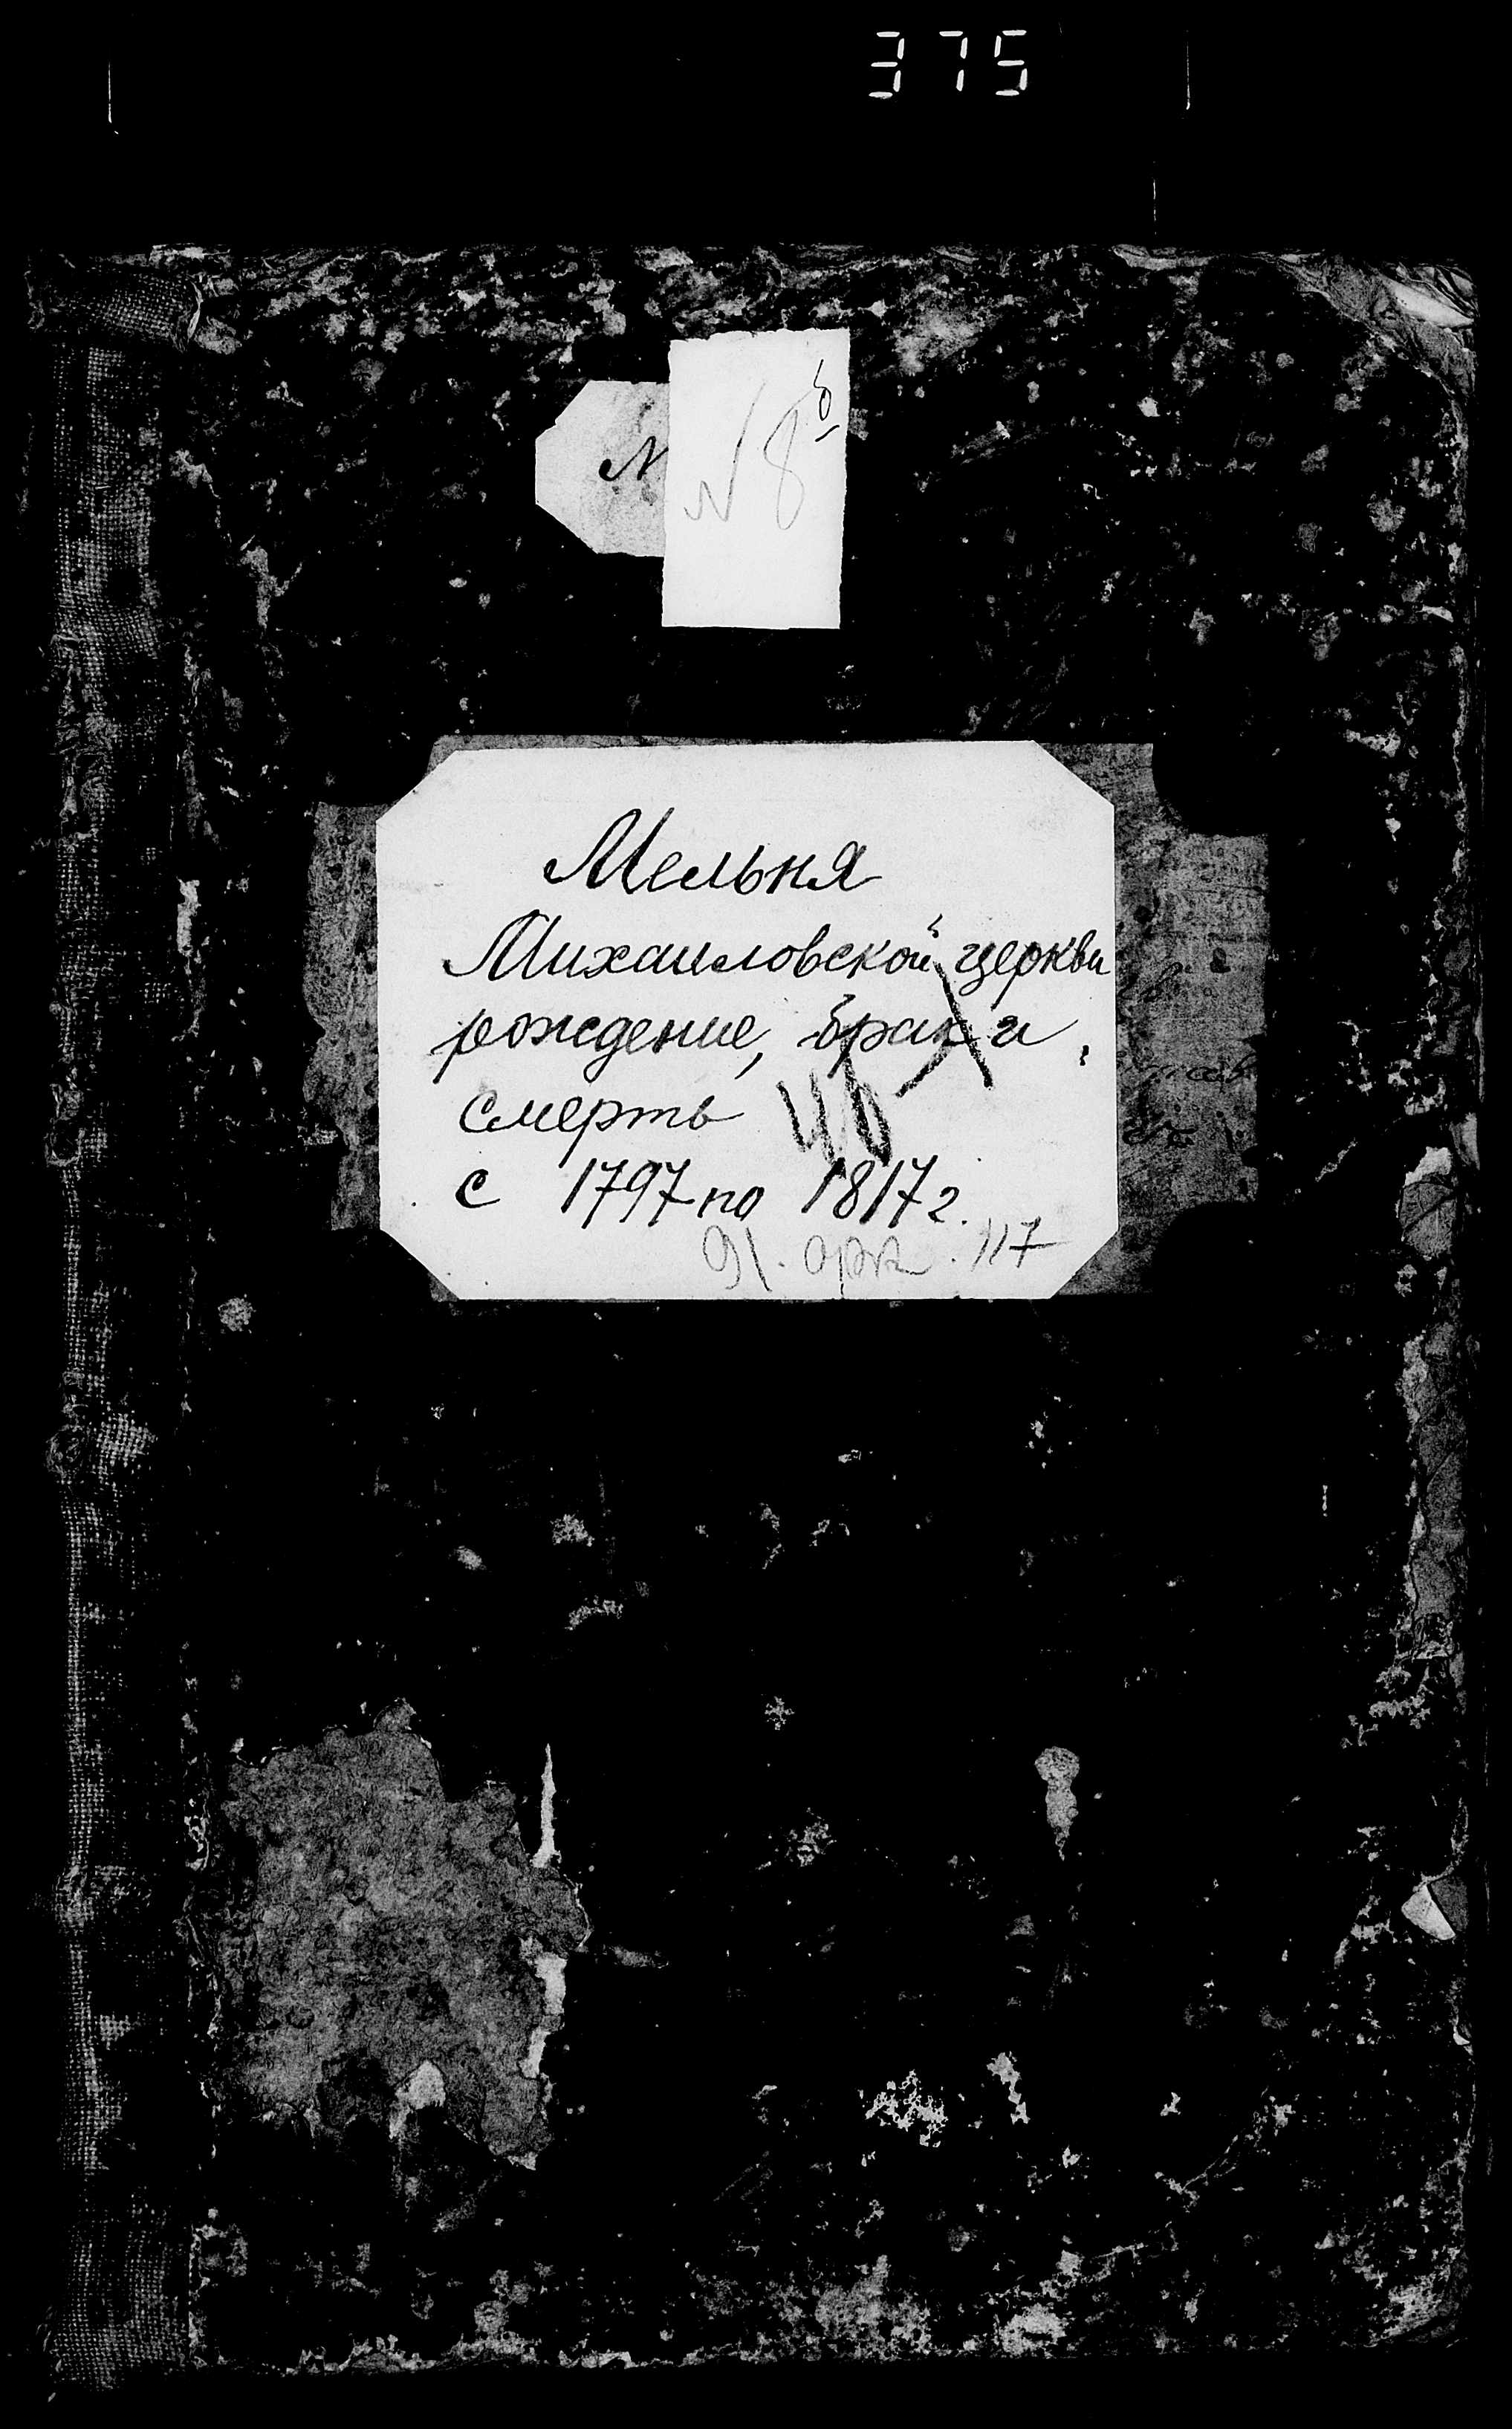 375
N
N 8 б
Мельня
Михаиловской церкви
рождение, брак и
смерть
с 1797 по 1817 г.
117